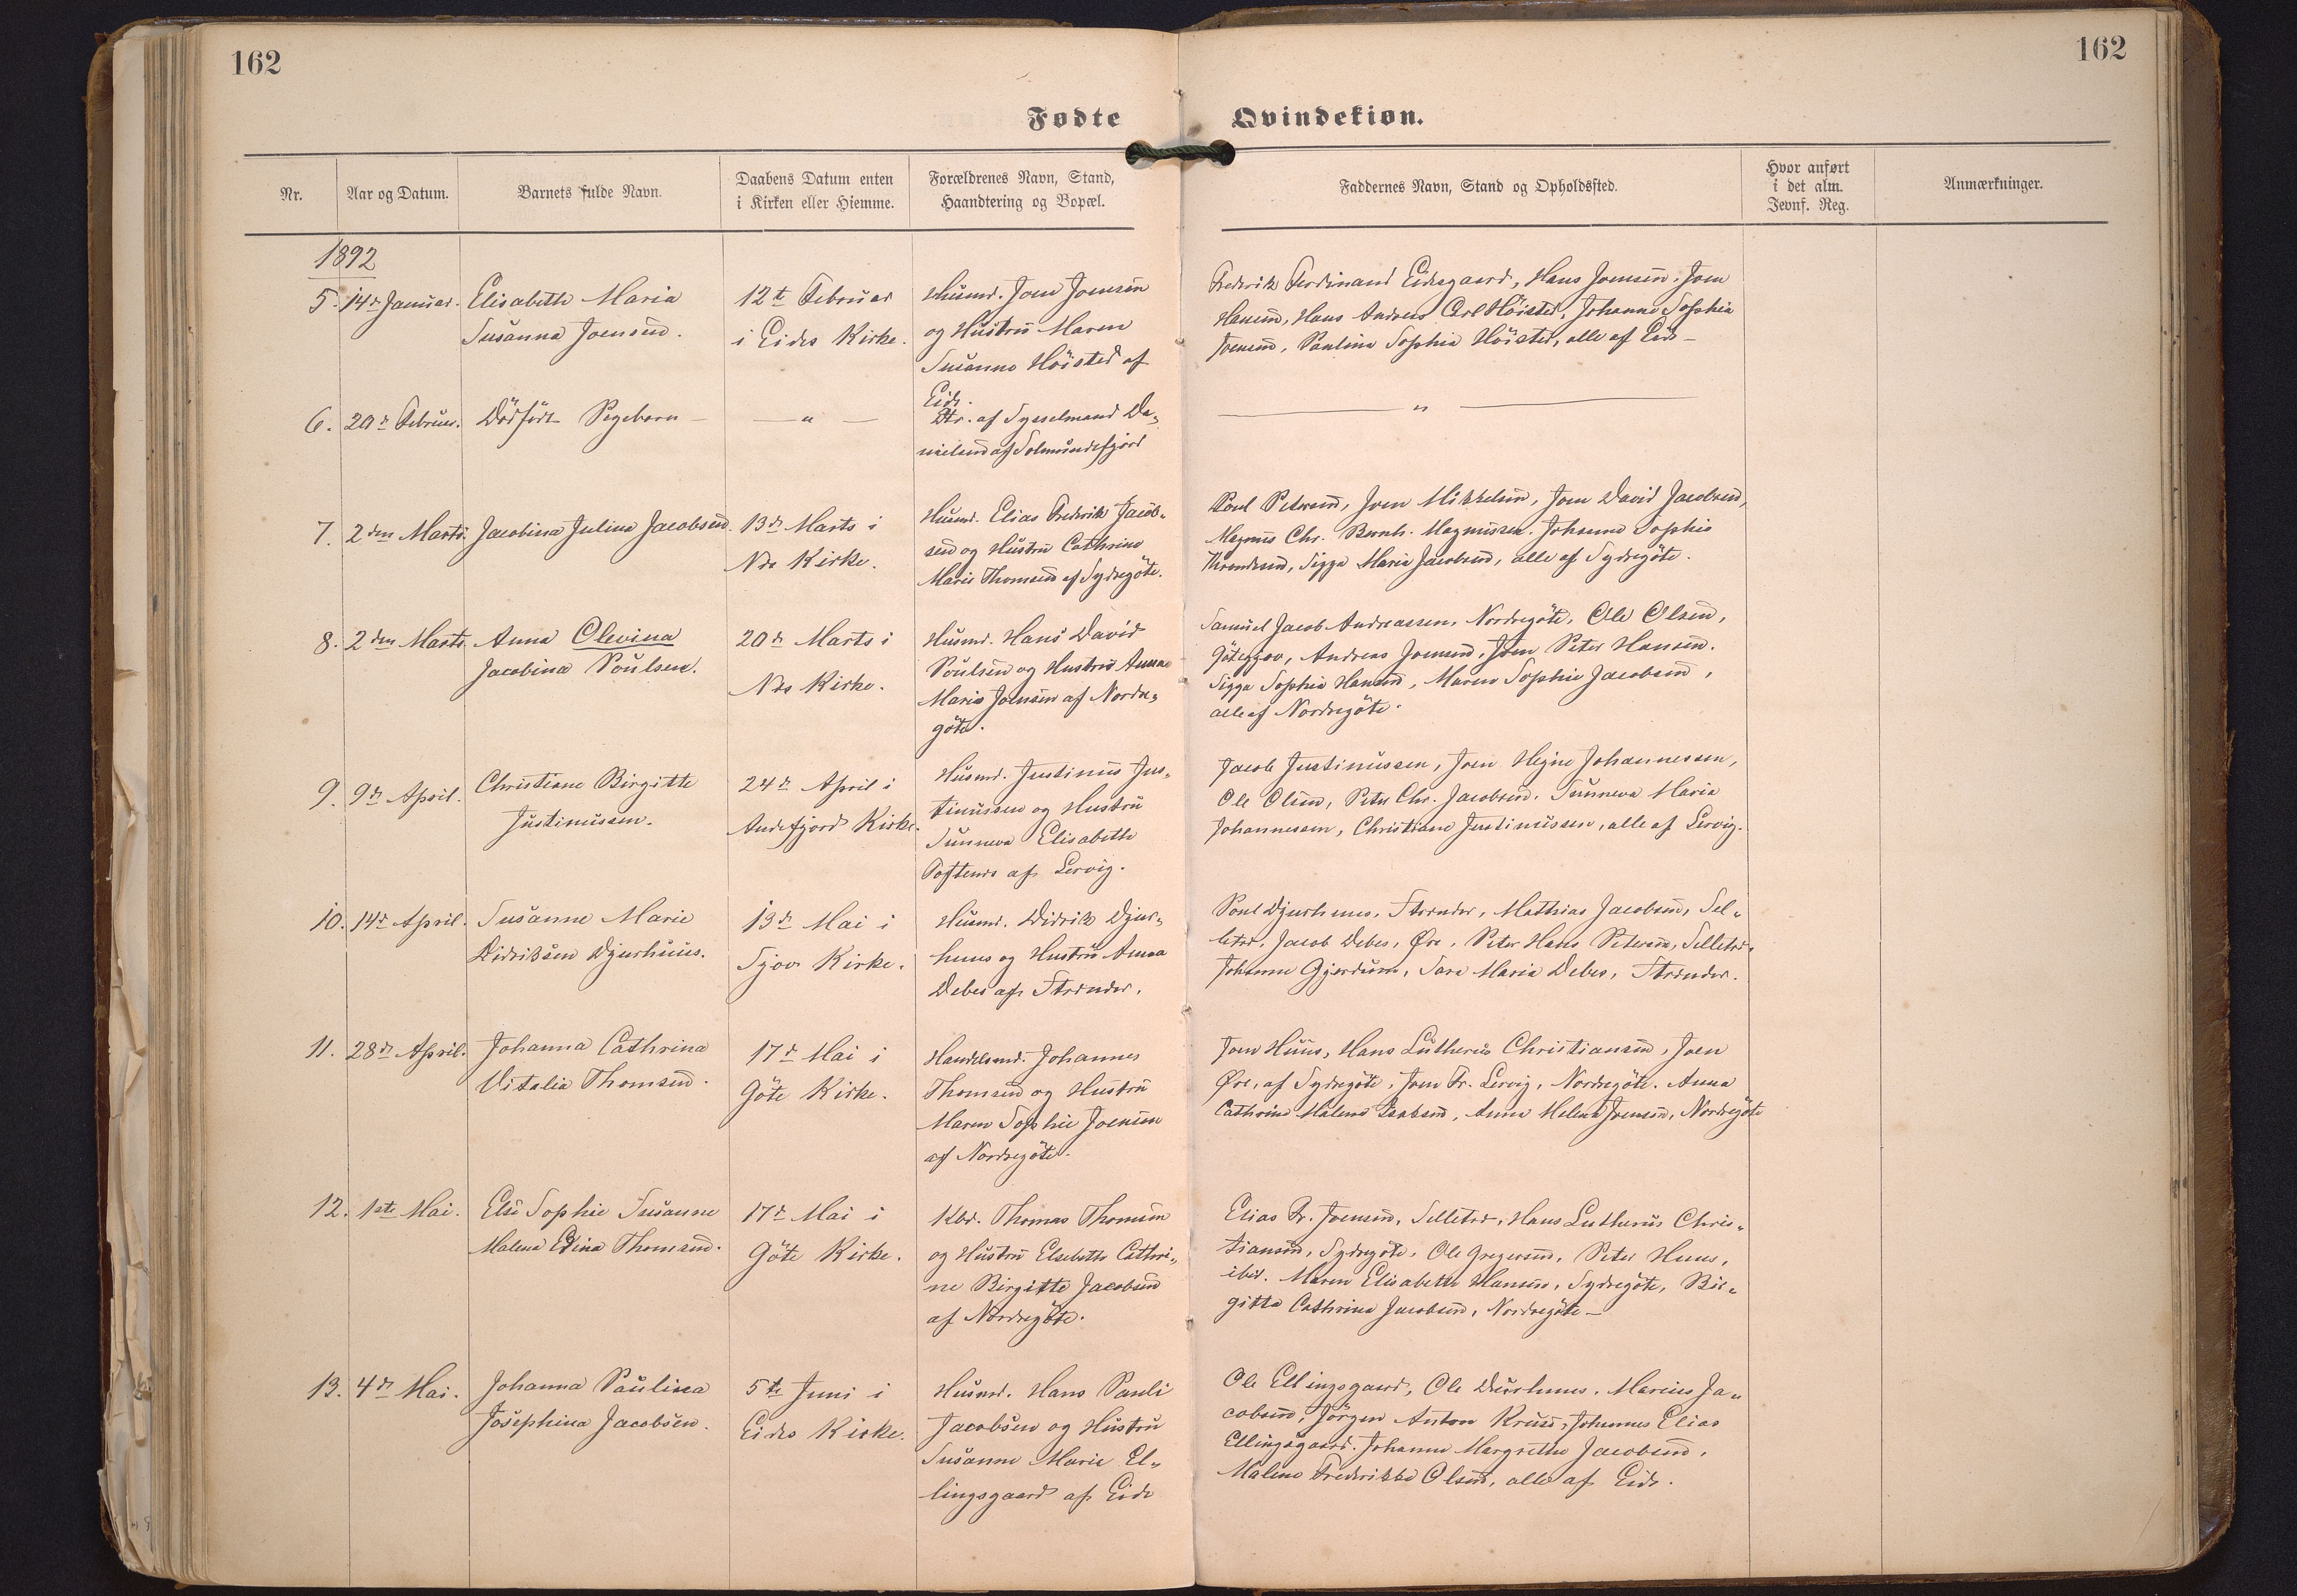 162
162
Fødte
Qvindekiøn.
Nr.
Aar og Datum.
Barnets fulde Navn.
Daabens Datum enten
i Kirken eller Hiemme.
Forældrenes Navn, Stand,
Haandtering og Bopæl.
Faddernes Navn, Stand og Opholdssted.
Hvor anført
i det alm.
Jevnf. Reg.
Anmærkninger.
1892
5. 14de Januar.
Elisabeth Maria
Susanna Joensen.
12te Februar
i Eides Kirke.
Husmd. Joen Joensen
og Hustru Maren
Susanne Höisted af
Eide.
Frederik Ferdinand Eidesgaard, Hans Joensen, Joen
Hansen, Hans Andreas Carl Höisted, Johanne Sophia
Joensen, Paulina Sophia Höisted, alle af Eide -
6. 20de Februar.
Dödfödt Pigebarn -
— " —
Dtr. af Sysselmand Da-
nielsen af Solmundefjord
— " —
7. 2den Marts.
Jacobina Julina Jacobsen.
13de Marts i
Næs Kirke.
Husmd. Elias Frederik Jacob-
sen og Hustru Cathrine
Marie Thomsen af Sydregöte.
Poul Petersen, Joen Mikkelsen, Joen David Jacobsen,
Magnus Chr. Bernh. Magnussen. Johanne Sophie
Throndesen, Sigga Maria Jacobsen, alle af Sydregöte.
8. 2den Marts.
Anna Olevina
Jacobina Poulsen.
20de Marts i
Næs Kirke.
Husmd. Hans David
Poulsen og Hustru Anna
Maria Joensen af Nordre-
göte.
Samuel Jacob Andreassen, Nordregöte, Ole Olsen,
Götegjov, Andreas Joensen, Joen Peter Hansen.
Sigga Sophia Hansen, Maren Sophie Jacobsen,
alle af Nordregöte.
9. 9de April.
Christiane Birgitte
Justinussen.
24de April i
Andefjord Kirke.
Husmd. Justinus Jus-
tinussen og Hustru
Sunneva Elisabeth
Toftenes af Lervig.
Jacob Justinussen, Joen Hejne Johannessen,
Ole Olsen, Peter Chr. Jacobsen. Sunneva Maria
Johannessen, Christiane Justinussen, alle af Lervig.
10. 14de April.
Susanne Marie
Didriksen Djurhuus.
13de Mai i
Sjov Kirke.
Husmd. Didrik Djur-
huus og Hustru Anna
Debes af Strender.
Poul Djurhuus, Strender, Mathias Jacobsen, Sel-
letræ, Jacob Debes, Øre, Peter Hans Petersen, Selletræ.
Johanne Gjerdum, Sara Maria Debes, Strender.
11. 28de April.
Johanna Cathrina
Vitalia Thomsen.
17de Mai i
Göte Kirke.
Handelsmd. Johannes
Thomsen og Hustru
Maren Sophie Joensen
af Nordregöte.
Joen Huus, Hans Lutherus Christiansen, Joen
Øre, af Sydregöte, Joen Fr. Lervig, Nordregöte. Anna
Cathrine Malene Isaksen, Anna Helena Joensen, Nordregöte
12. 1ste Mai.
Else Sophie Susanne
Malena Edina Thomsen.
17de Mai i
Göte Kirke.
Kbd. Thomas Thomsen
og Hustru Elsebeth Cathri-
ne Birgitte Jacobsen
af Nordregöte.
Elias Fr. Joensen, Selletræ, Hans Lutherus Chris-
tiansen, Sydregöte, Ole Gregersen, Peter Huus,
ibid. Maren Elisabeth Hansen, Sydregöte, Bir-
gitta Cathrina Jacobsen, Nordregöte -
13. 4de Mai.
Johanna Paulina
Josephina Jacobsen.
5te Juni i
Eides Kirke.
Husmd. Hans Pauli
Jacobsen og Hustru
Susanne Marie El-
lingsgaard af Eide
Ole Ellingsgaard, Ole Durhuus, Marius Ja-
cobsen, Jörgen Anton Kruse, Johannes Elias
Ellingsgaard. Johanne Margrethe Jacobsen,
Malene Frederikke Olsen, alle af Eide.